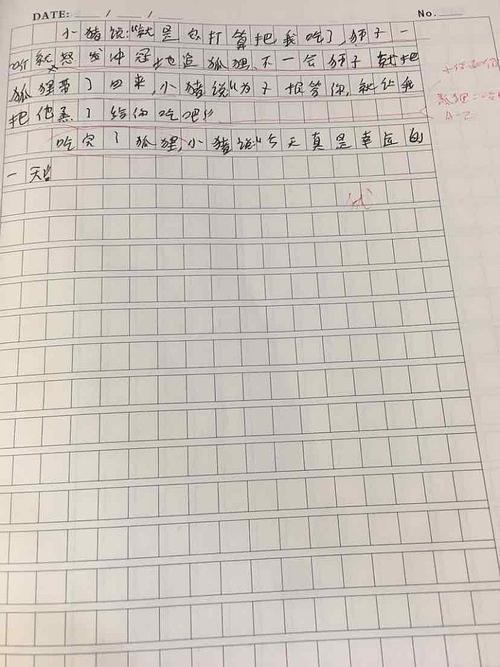 DATE: / / No.
小猪说:“就是他打算把我吃了,狮子一
听就怒发冲冠地追狐狸,不一会狮子就把
狐狸带了回来,小猪说“为了报答你,就让我
把他蒸了给你吃吧!”
吃完了狐狸,小猪说:“今天真是幸运的
一天